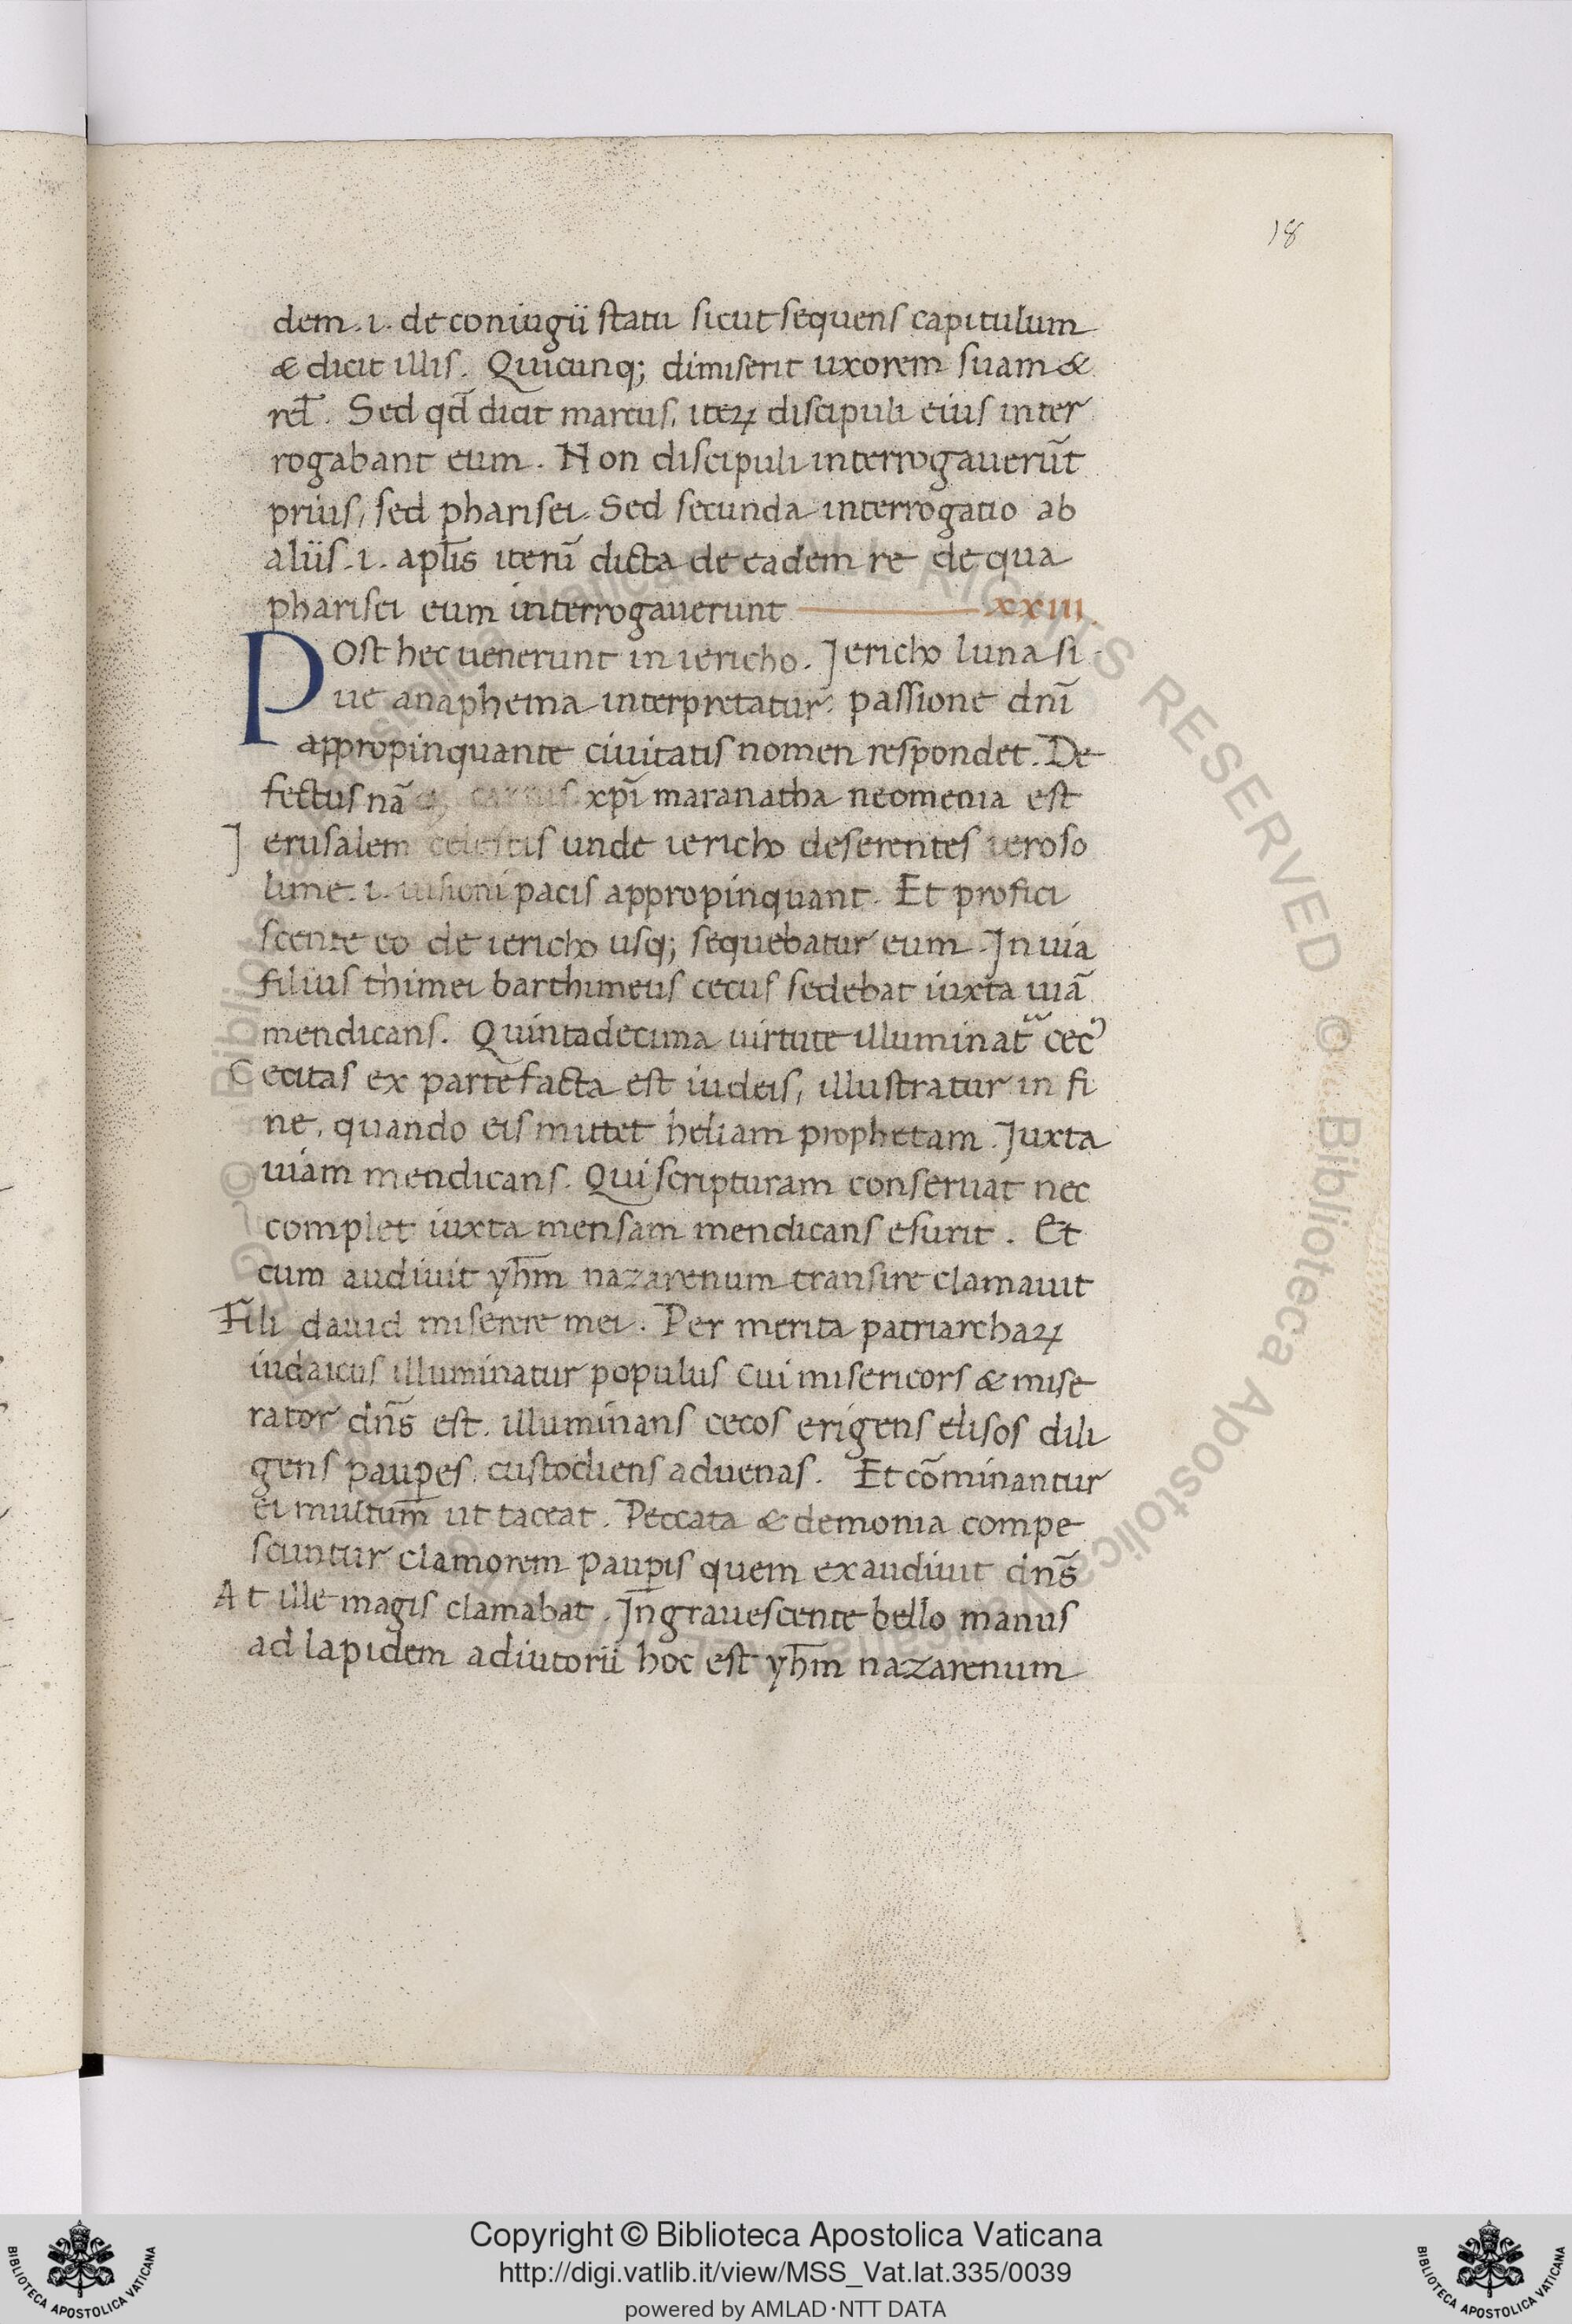 18
dem. i. de coniugii statu sicut sequens capitulum
& dicit illis. Quicunq; dimiserit uxorem suam &
rel̄. Sed qd̄ dicit marcus, iteꝝ discipuli eius inter
rogabant eum. Non discipuli interrogauerūt
prius, sed pharisei. Sed secunda interrogatio ab
aliis. i. apl̄is iterū dicta de eadem re de qua
pharisei eum interrogauerunt xxiii.
Post hec uenerunt in iericho. Jericho luna si
ue anaphema interpretatur. passione dn̄i
appropinquante ciuitatis nomen respondet. De
fectus nāq; carnis xp̄i maranatha neomenia est
Jerusalem celestis unde iericho deserentes ieroso
lime. i. uisioni pacis appropinquant. Et profici
scente eo de iericho usq; sequebatur eum. In uia
filius thimei barthimeus cecus sedebat iuxta uiā
mendicans. Quintadecima uirtute illuminat᷑ cecꝰ
Cecitas ex parte facta est iudeis, illustratur in fi
ne, quando eis mittet heliam prophetam. Juxta
uiam mendicans. Qui scripturam conseruat nec
complet iuxta mensam mendicans esurit. Et
cum audiuit yh̄m nazarenum transire clamauit
Fili dauid miserere mei. Per merita patriarchaꝝ
iudaicus illuminatur populus cui misericors & mise
rator dn̄s est. illuminans cecos erigens elisos dili
gens paup̲es, custodiens aduenas. Et cōminantur
ei multum ut taceat. Peccata & demonia compe
scuntur clamorem paup̲is quem exaudiuit dn̄s
At ille magis clamabat. Ingrauescente bello manus
ad lapidem adiutorii hoc est yh̄m nazarenum
Copyright © Biblioteca Apostolica Vaticana
http://digi.vatlib.it/view/MSS_Vat.lat.335/0039
powered by AMLAD·NTT DATA
BIBLIOTECA APOSTOLICA VATICANA
BIBLIOTECA APOSTOLICA VATICANA